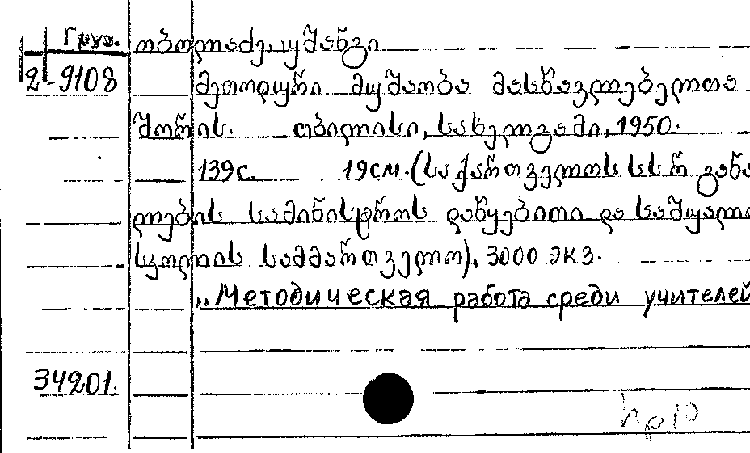 Груз. ობოლაძე, უშანგი
2-9108 მეთოდური მუშაობა მასწავლებელთა
შორის. თბილისი, სახელგამი, 1950.
139с. 19см. (საქართველოს სსრ განა
ლების სამინისტროს დაწყებითი და საშუალო
სკოლის სამმართველო), 3000 экз.
„Методическая работа среди учителей
34201.